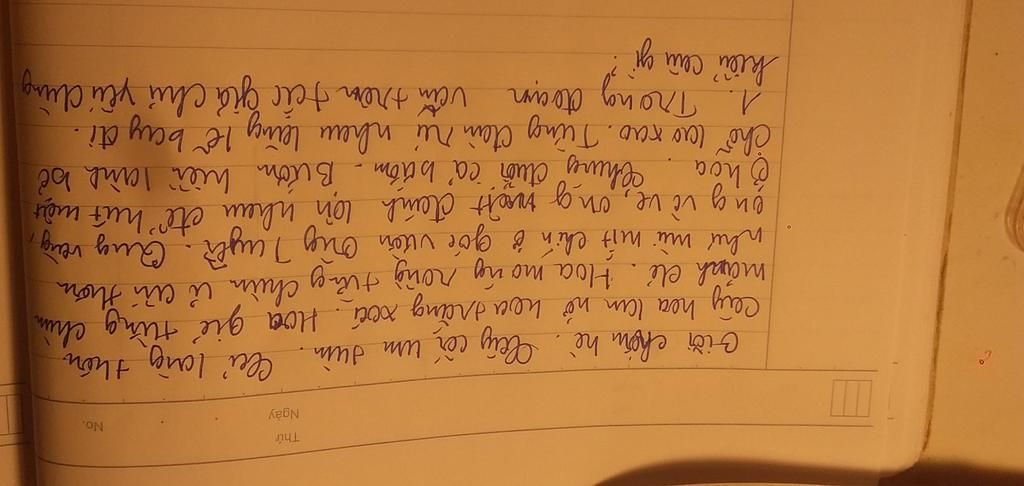 Thứ
Ngày
No.
Giời chớm hè. Cây cối um tùm. Cả làng thơm
Cây hoa lan nở hoa trắng xoá. Hoa giẻ từng chùm
mảnh dẻ. Hoa móng rồng từng chùm bụ bẫm thơm
như mùi mít chín ở góc vườn ông Tuyên. Ong vàng,
ong vò vẽ, ong mật đánh lộn nhau để hút mật
ở hoa. Chúng đuổi cả bướm. Bướm hiền lành bỏ
chỗ lao xao. Từng đàn rủ nhau lặng lẽ bay đi.
1. Trong đoạn văn trên tác giả chủ yếu dùng
kiểu câu gì?